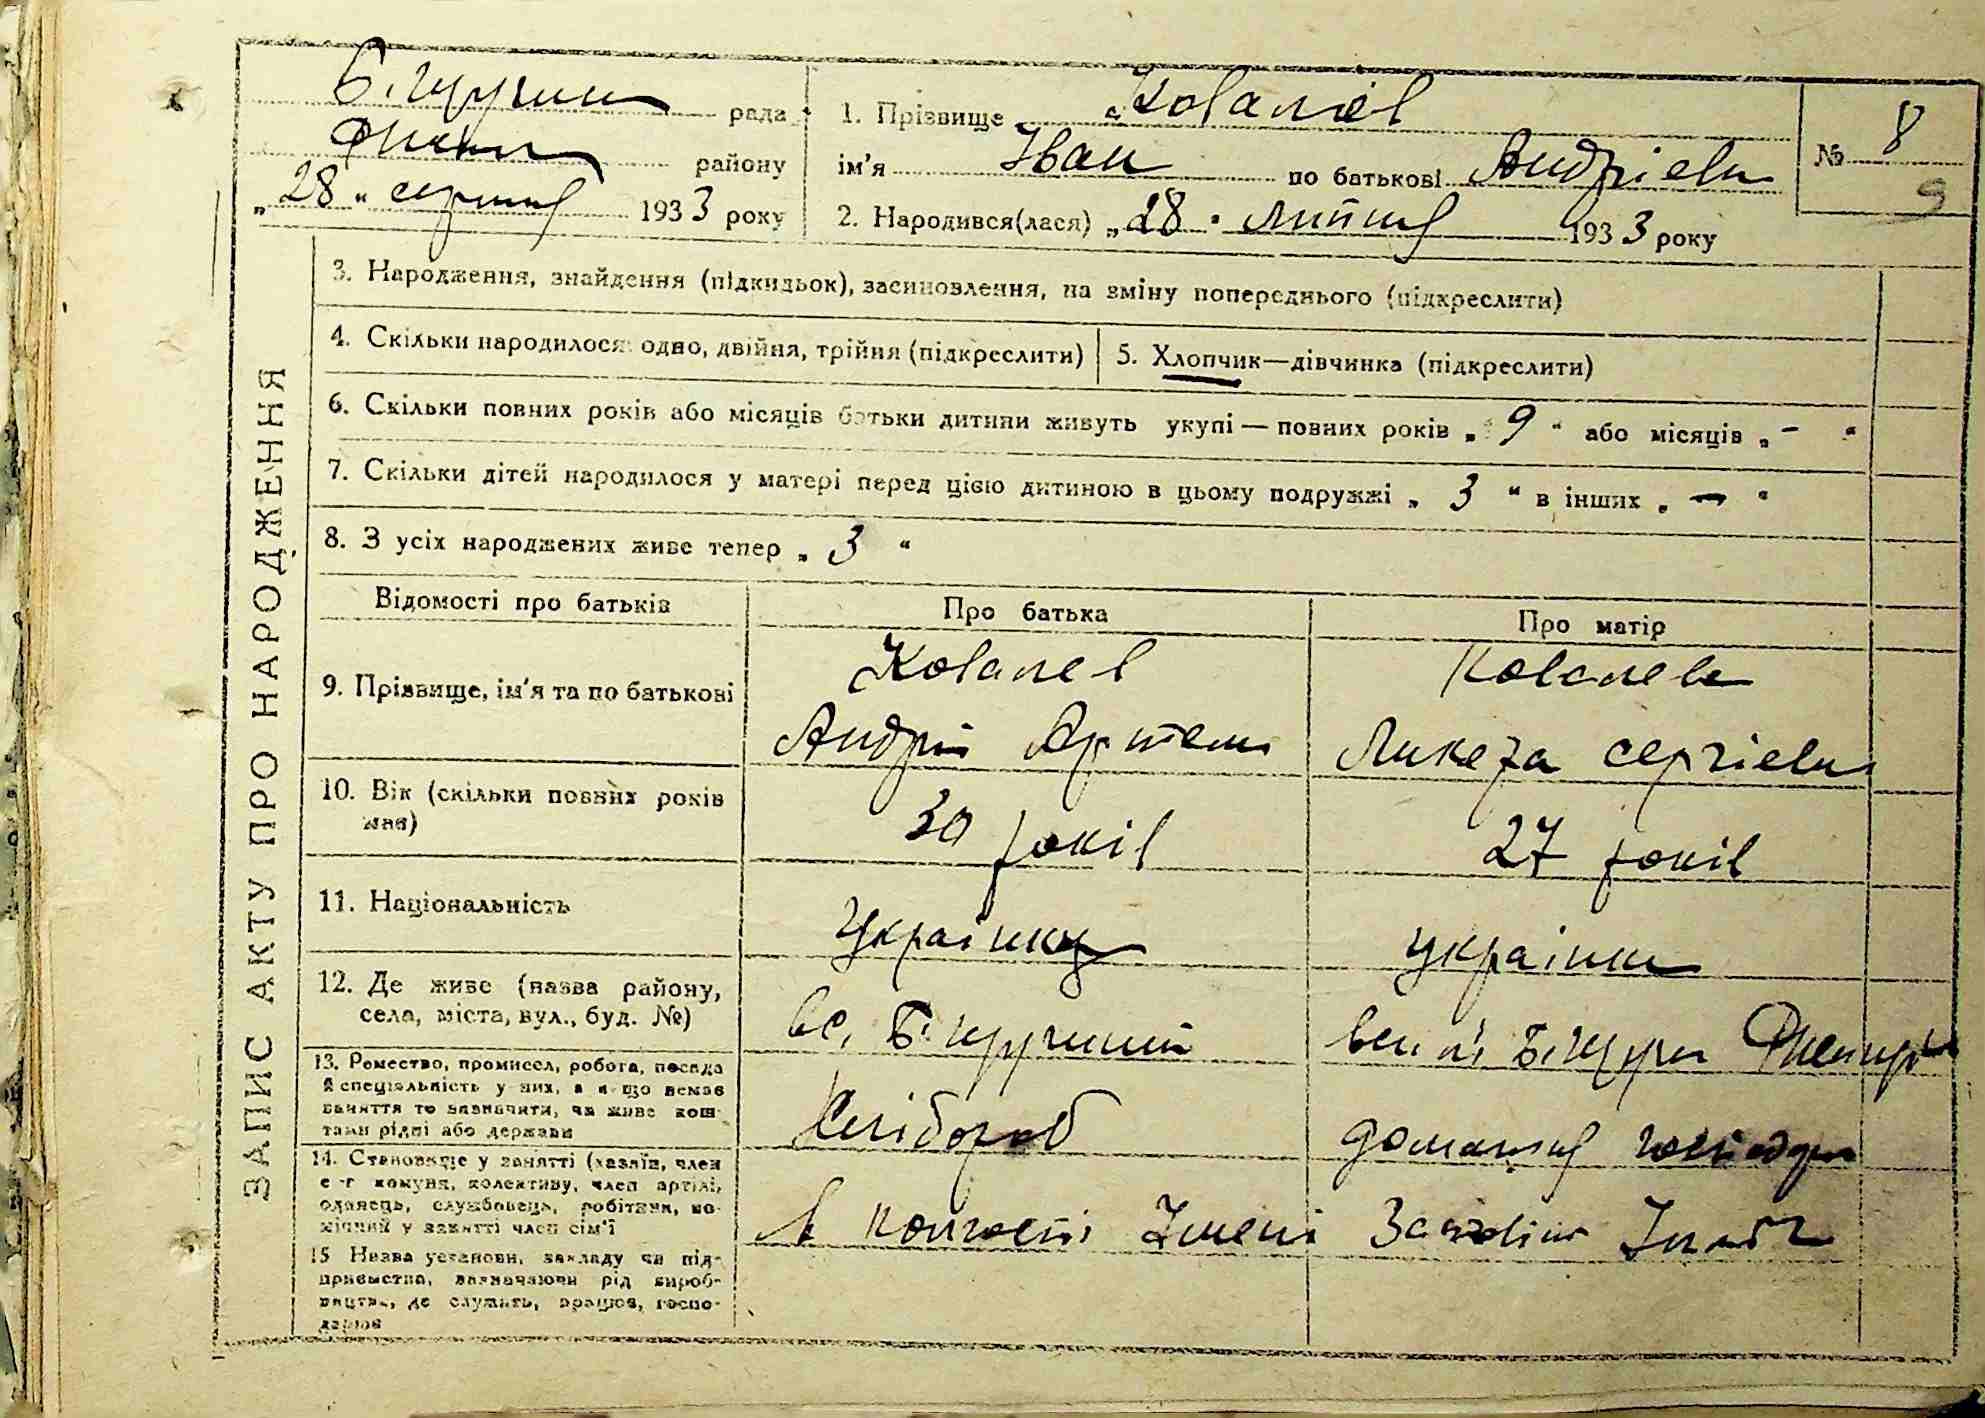 рада
району
„28“ серпня 1933 року
1. Прізвище Ковалев
ім'я Іван по батькові Андрієви
2. Народився(лася) „28“ липня 1933 року
№ 8
9
ЗАПИС АКТУ ПРО НАРОДЖЕННЯ
3. Народження, знайдення (підкидьок), засиновлення, на зміну попереднього (підкреслити)
4. Скільки народилося: одно, двійня, трійня (підкреслити)
5. Хлопчик—дівчинка (підкреслити)
6. Скільки повних років або місяців батьки дитини живуть укупі — повних років „9“ або місяців „-“
7. Скільки дітей народилося у матері перед цією дитиною в цьому подружжі „3“ в інших „—“
8. З усіх народжених живе тепер „3“
Відомості про батьків
Про батька
Про матір
9. Прізвище, ім'я та по батькові
Ковалев
Андрій Артем
Ковалева
Ликера Сергієвн
10. Вік (скільки повних років
має)
30 років
27 років
11. Національність
Українец
українк
12. Де живе (назва району,
села, міста, вул., буд. №)
13. Ремество, промисел, робота, посада
й спеціяльність у них, а якщо немає
заняття то зазначити, чи живе кош-
тами рідні або держави
Хлібороб
домашня
14. Становище у занятті (хазяїн, член
с.-г комуни, колективу, член артілі,
одинець, службовець, робітник, по-
мічний у занятті член сім'ї
в колгоспі Імені
15 Назва установи, закладу чи під-
приємства, зазначаючи рід вироб-
ництва, де служить, працює, госпо-
дарює